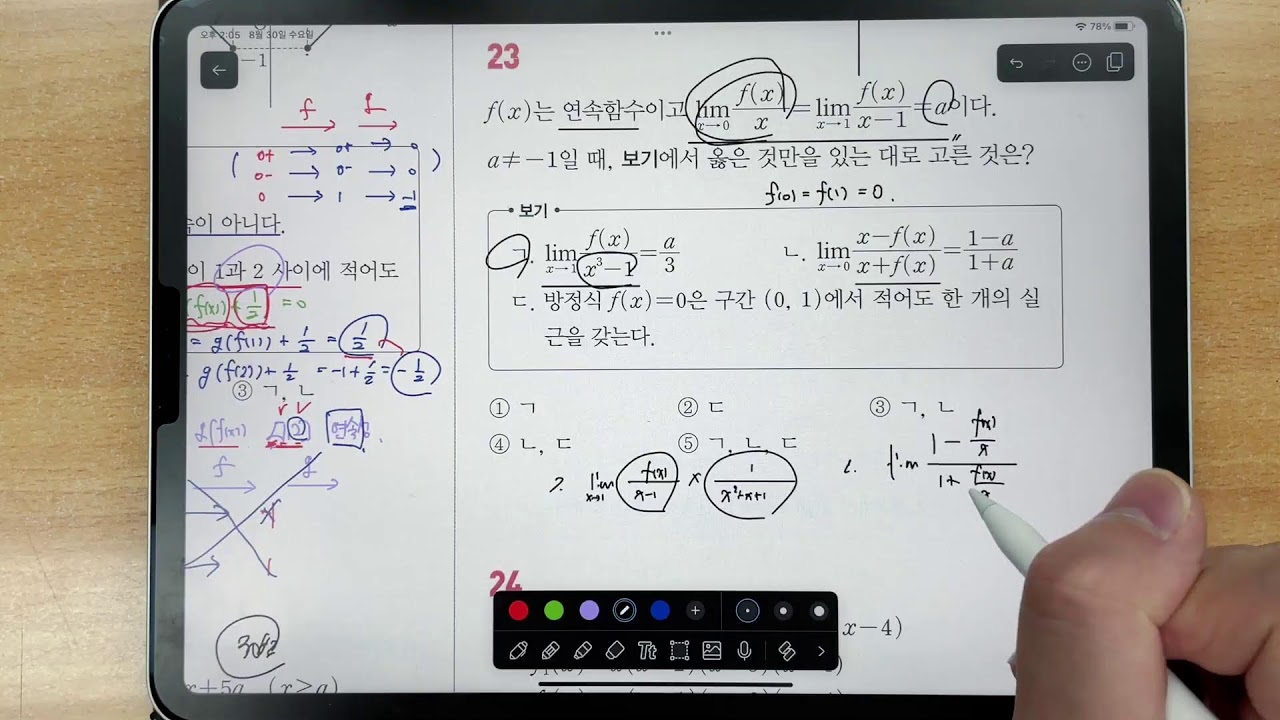 오후 2:05 8월 30일 수요일
78%
-1
f g
0+ → 0+ → 0
0- → 0- → 0
0 → 1 → -1
속이 아니다.
이 1과 2 사이에 적어도
f(x)) + 1/2 = 0
= g(f(1)) + 1/2 = 1/2
g(f(2)) + 1/2 = -1 + 1/2 = -1/2
③ ㄱ, ㄴ
f g
x+5a (x≥a)
23
f(x)는 연속함수이고 lim x→0 f(x)/x = lim x→1 f(x)/(x-1) = a이다.
a≠-1일 때, 보기에서 옳은 것만을 있는 대로 고른 것은?
f(0) = f(1) = 0.
보기
ㄱ. lim x→1 f(x)/(x³-1) = a/3 ㄴ. lim x→0 (x-f(x))/(x+f(x)) = (1-a)/(1+a)
ㄷ. 방정식 f(x)=0은 구간 (0, 1)에서 적어도 한 개의 실
근을 갖는다.
① ㄱ ② ㄷ ③ ㄱ, ㄴ
④ ㄴ, ㄷ ⑤ ㄱ, ㄴ, ㄷ
ㄱ. lim x→1 f(x)/(x-1) × 1/(x²+x+1)
ㄴ. lim (1 - f(x)/x)/(1 + f(x)/x)
24
x-4)
Tt